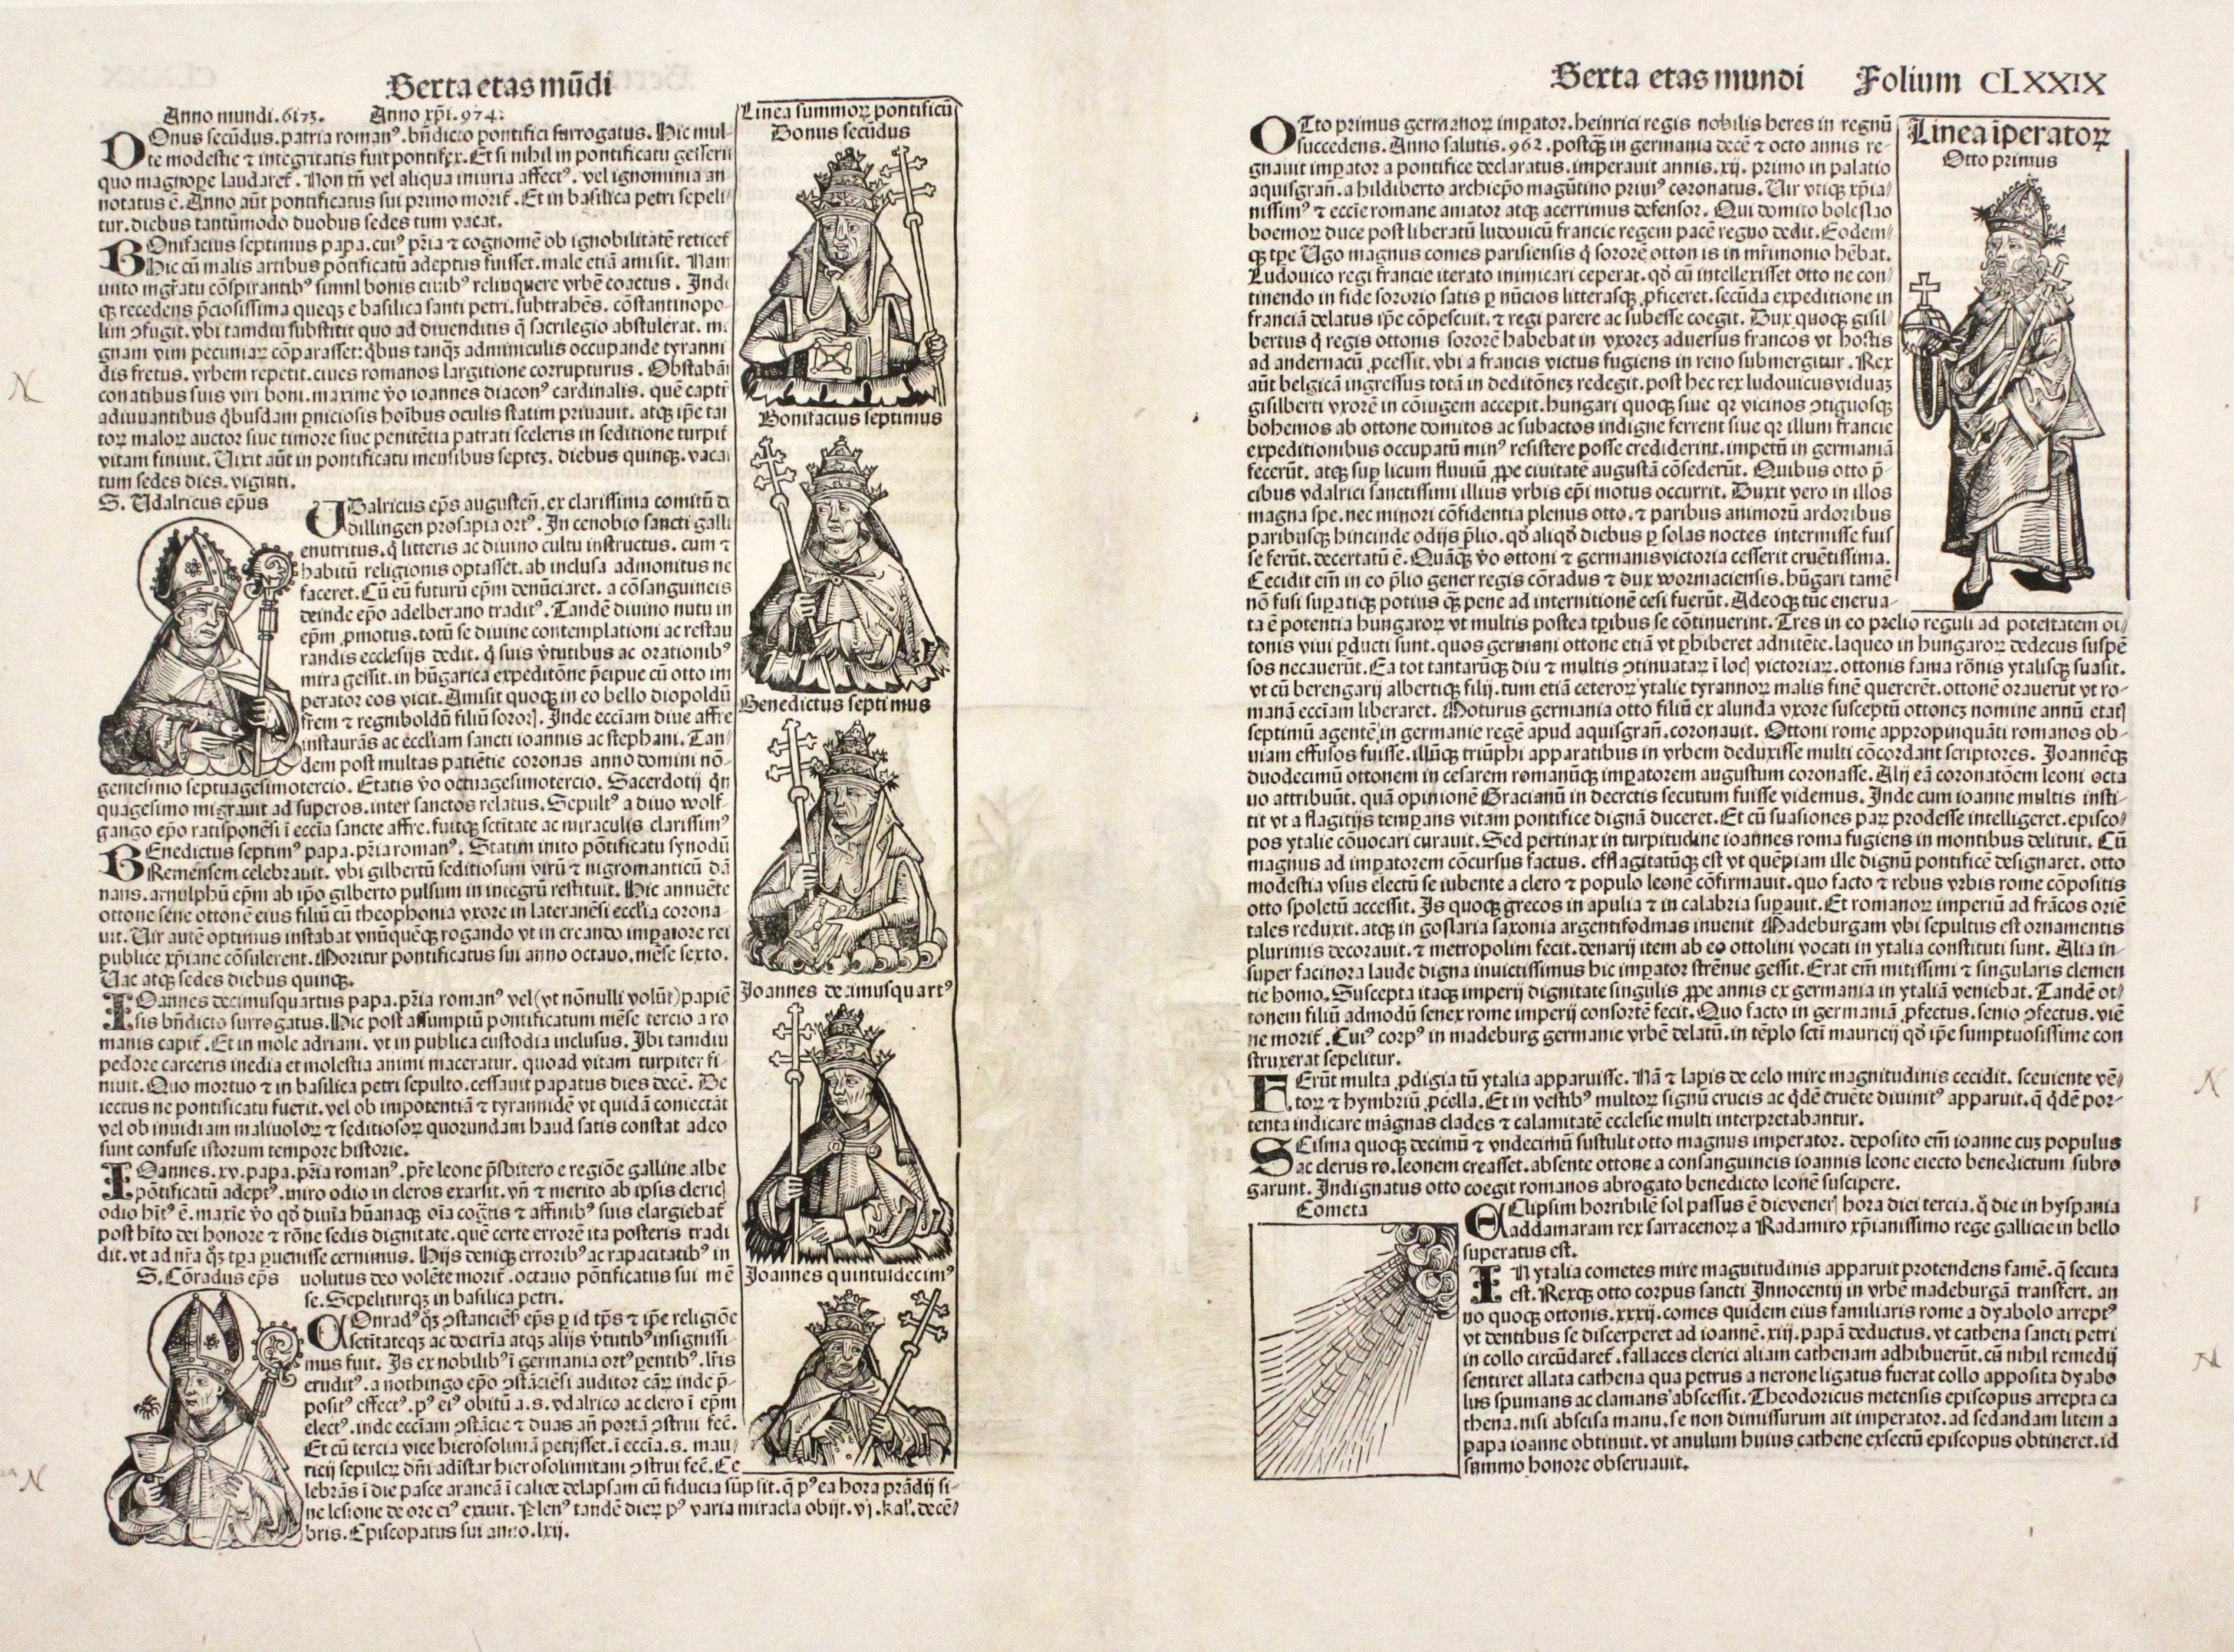 Sexta etas mũdi
Anno mundi .6173. Anno xp̃i .974.
DOnus secũdus. patria romanꝰ. bñdicto pontifici surrogatus. Hic mul-
te modestie ⁊ integritatis fuit pontifex. Et si nihil in pontificatu gesserit
quo magnope laudaret̃. Non tñ vel aliqua iniuria affectꝰ. vel ignominia an
notatus ẽ. Anno aũt pontificatus sui primo morit̃. Et in basilica petri sepeli/
tur. diebus tantũmodo duobus sedes tum vacat.
BOnifacius septimus papa. cuiꝰ pr̃ia ⁊ cognomẽ ob ignobilitatẽ reticet̃
Hic cũ malis artibus põtificatũ adeptus fuisset. male etiã amisit. Nam
inito mgr̃atu cõspirantibꝰ simul bonis ciuibꝰ relinquere vrbẽ coactus. Inde
qꝫ recedens p̃ciosissima queqꝫ e basilica santi petri. subtrahẽs. cõstantinopo-
lim ꝯfugit. vbi tamdiu substitit quo ad diuenditis q̃ sacrilegio abstulerat. ma
gnam vim pecuniaꝝ cõparasset: q̃bus tanqꝫ adminiculis occupande tyranni
dis fretus. vrbem repetit. ciues romanos largitione corrupturus. Obstabãt
conatibus suis viri boni. maxime ṽo ioannes diaconꝰ cardinalis. quẽ captũ
adiuuantibus q̃busdam ꝑniciosis hoĩbus oculis statim priuauit. atqꝫ ip̃e tan
toꝝ maloꝝ auctor siue timore siue penitẽtia patrati sceleris in seditione turpit̃
vitam finiuit. Uixit aũt in pontificatu mensibus septeꝫ. diebus quinqꝫ. vaca
tum sedes dies. viginti.
S. Udalricus ep̃us
UDalricus ep̃s augusteñ. ex clarissima comitũ d̃
dillingen prosapia ortꝰ. In cenobio sancti galli
enutritus. q̃ litteris ac diuino cultu instructus. cum ⁊
habitũ religionis optasset. ab inclusa admonitus ne
faceret. Cũ eũ futurũ ep̃m denũciaret. a cõsanguineis
deinde ep̃o adelberano traditꝰ. Tandẽ diuino nutu in
ep̃m ꝓmotus. totũ se diuine contemplationi ac restau
randis ecclesijs dedit. q̃ suis ṽtutibus ac orationibꝰ
mira gessit. in hũgarica expeditõne p̃cipue cũ otto im
perator eos vicit. Amisit quoqꝫ in eo bello diopoldũ
fr̃em ⁊ regniboldũ filiũ soroꝝ. Inde ecciam diue affre
instaurãs ac eccliam sancti ioannis ac stephani. Tan-
dem post multas patiẽtie coronas anno domini nõ-
gentesimo septuagesimotercio. Etatis ṽo octuagesimotercio. Sacerdotij q̃n
quagesimo migrauit ad superos. inter sanctos relatus. Sepultꝰ a diuo wolf-
gango ep̃o ratisponẽsi ĩ eccĩa sancte affre. fuitqꝫ sctĩtate ac miraculis clarissimꝰ
BEnedictus septimꝰ papa. pr̃ia romanꝰ. Statim inito põtificatu synodũ
Remẽnsem celebrauit. vbi gilbertũ seditiosum virũ ⁊ nigromanticũ dã
nans. arnulphũ ep̃m ab ip̃o gilberto pulsum in integrũ restituit. Hic annuẽte
ottone sene ottonẽ eius filiũ cũ theophonia vxore in lateranẽsi ecclĩa corona-
uit. Uir autẽ optimus instabat vnũquẽqꝫ rogando vt in creando imꝑatore rei
publice xp̃iane cõsulerent. Moritur pontificatus sui anno octauo. mẽse sexto.
Uac atqꝫ sedes diebus quinqꝫ.
IOannes decimusquartus papa. pr̃ia romanꝰ vel (vt nõnulli volũt) papiẽ
sis bñdicto surrogatus. Hic post assumptũ pontificatum mẽse tercio a ro
manis capit̃. Et in mole adriani. vt in publica custodia inclusus. Ibi tamdiu
pedore carceris inedia et molestia animi maceratur. quoad vitam turpiter fi-
niuit. Quo mortuo ⁊ in basilica petri sepulto. cessauit papatus dies decẽ. De
iectus ne pontificatu fuerit. vel ob impotentiã ⁊ tyrannidẽ vt quidã coniectãt
vel ob inuidiam maliuoloꝝ ⁊ seditiosoꝝ quorundam haud satis constat adeo
sunt confuse istorum tempore historie.
IOannes. xv. papa. pr̃ia romanꝰ. pr̃e leone p̃sbitero e regiõe galline albe
põtificatũ adeptꝰ. miro odio in cleros exarsit. vñ ⁊ merito ab ipsis clericꝭ
odio hitꝰ ẽ. maxĩe ṽo qõ diuĩa hũanaqꝫ oĩa cog̃tis ⁊ affinibꝰ suis elargiebat̃
post hito dei honore ⁊ rõne sedis dignitate. quẽ certe errorẽ ita posteris tradi
dit. vt ad nr̃a qꝫ tp̃a ꝑuenisse cernimus. Hijs deniqꝫ erroribꝰ ac rapacitatibꝰ in
S. Cõradus ep̃s
uolutus deo volẽte morit̃. octauo põtificatus sui mẽ
se. Sepeliturqꝫ in basilica petri.
COnradꝰ qꝫ ꝯstanciẽs̃ ep̃s ꝑ id tp̃s ⁊ ip̃e religiõe
sctĩtateqꝫ ac doctrĩa atqꝫ alijs ṽtutibꝰ insignissi-
mus fuit. Is ex nobilibꝰ ĩ germania ortꝰ pentibꝰ. lr̃is
eruditꝰ. a nothingo ep̃o ꝯstãciẽsi auditor cãꝝ inde p̃-
positꝰ effectꝰ. pꝰ eiꝰ obitũ a. s. vdalrico ac clero ĩ ep̃m
electꝰ. inde ecciam ꝯstãcie ⁊ duas añ portã ꝯstrui fec̃.
Et cũ tercia vice hierosolimã petijsset. ĩ eccĩa. s. mau/
ricij sepulcꝝ dñi ad ĩstar hierosolimitani ꝯstrui fec̃. Ce
lebrãs ĩ die pasce araneã ĩ calice delapsam cũ fiducia sũpsit. q̃ pꝰ ea hora prãdij si-
ne lesione de ore eiꝰ exiuit. Plenꝰ tandẽ dieꝝ pꝰ varia miracla obijt. vj. kal. decẽ/
bris. Episcopatus sui anno. lxij.
Linea summoꝝ pontificũ
Donus secũdus
Bonifacius septimus
Benedictus septimus
Joannes decimusquartꝰ
Joannes quintusdecimꝰ
Sexta etas mundi Folium CLXXIX
OTto primus germanoꝝ imꝑator. heinrici regis nobilis heres in regnũ
succedens. Anno salutis. 962. postqꝫ in germania decẽ ⁊ octo annis re-
gnauit imꝑator a pontifice declaratus. imperauit annis. xij. primo in palatio
aquisgrañ. a hildiberto archiep̃o magũtino primꝰ coronatus. Uir vtiqꝫ xp̃ia/
nissimꝰ ⁊ eccĩe romane amator atqꝫ acerrimus defensor. Qui domito boleslao
boemoꝝ duce post liberatũ ludouicũ francie regem pacẽ regno dedit. Eodem/
qꝫ tp̃e Ugo magnus comes parisiensis q̃ sororẽ otton is in mr̃imonio hẽbat.
Ludouico regi francie iterato inimicari ceperat. qõ cũ intellexisset otto ne con/
tinendo in fide sororio satis ꝑ nũcios litterasqꝫ ꝓficeret. secũda expeditione in
franciã delatus ip̃e cõpescuit. ⁊ regi parere ac subesse coegit. Dux quoqꝫ gisil/
bertus q̃ regis ottonis sororẽ habebat in vxoreꝫ aduersus francos vt hostis
ad andernacũ ꝓcessit. vbi a francis victus fugiens in reno submergitur. Rex
aũt belgicã ingressus totã in deditõneꝫ redegit. post hec rex ludouicus viduaꝫ
gisilberti vxorẽ in cõiugem accepit. hungari quoqꝫ siue qꝛ vicinos ꝯtiguosqꝫ
bohemos ab ottone domitos ac subactos indigne ferrent siue qꝛ illum francie
expeditionibus occupatũ minꝰ resistere posse crediderint. impetũ in germaniã
fecerũt. atqꝫ suꝑ licum fluuiũ ꝓpe ciuitatẽ augustã cõsederũt. Quibus otto p̃-
cibus vdalrici sanctissimi illius vrbis ep̃i motus occurrit. Duxit vero in illos
magna spe. nec minori cõfidentia plenus otto. ⁊ paribus animorũ ardoribus
paribusqꝫ hincinde odijs p̃lio. qõ aliqõ diebus ꝑ solas noctes intermisse fuis
se ferũt. decertatũ ẽ. Quãqꝫ ṽo ottoni ⁊ germanis victoria cesserit cruẽtissima.
Cecidit em̃ in eo p̃lio gener regis cõradus ⁊ dux wormaciensis. hũgari tamẽ
nõ fusi suꝑatiqꝫ potius qꝫ pene ad internitionẽ cesi fuerũt. Adeoqꝫ tũc enerua-
ta ẽ potentia hungaroꝝ vt multis postea tp̃ibus se cõtinuerint. Tres in eo prelio reguli ad potestatem ot/
tonis viui ꝑducti sunt. quos germani ottone etiã vt ꝓhiberet adnitẽte. laqueo in hungaroꝝ dedecus suspẽ
sos necauerũt. Ea tot tantarũqꝫ diu ⁊ multis ꝯtinuataꝝ ĩ locꝭ victoriaꝝ. ottonis fama rõnis ytalisqꝫ suasit.
vt cũ berengarij albertiqꝫ filij. tum etiã ceteroꝝ ytalie tyrannoꝝ malis finẽ quererẽt. ottonẽ orauerũt vt ro-
manã ecciam liberaret. Moturus germania otto filiũ ex alunda vxore susceptũ ottoneꝫ nomine annũ etatꝭ
septimũ agentẽ in germanie regẽ apud aquisgrañ. coronauit. Ottoni rome appropinquãti romanos ob-
uiam effusos fuisse. illũqꝫ triũphi apparatibus in vrbem deduxisse multi cõcordant scriptores. Joannẽqꝫ
duodecimũ ottonem in cesarem romanũqꝫ imꝑatorem augustum coronasse. Alij eã coronatõem leoni octa
uo attribuũt. quã opinionẽ Gracianũ in decretis secutum fuisse videmus. Inde cum ioanne multis insti-
tit vt a flagitijs temꝑans vitam pontifice dignã duceret. Et cũ suasiones paꝝ prodesse intelligeret. episco/
pos ytalie cõuocari curauit. Sed pertinax in turpitudine ioannes roma fugiens in montibus delituit. Cũ
magnus ad imꝑatorem cõcursus factus. efflagitatũqꝫ est vt quẽpiam ille dignũ pontificẽ designaret. otto
modestia vsus electũ se iubente a clero ⁊ populo leonẽ cõfirmauit. quo facto ⁊ rebus vrbis rome cõpositis
otto spoletũ accessit. Is quoqꝫ grecos in apulia ⁊ in calabria suꝑauit. Et romanoꝝ imperiũ ad frãcos oriẽ
tales reduxit. atqꝫ in goslaria saxonia argentifodinas inuenit Madeburgam vbi sepultus est ornamentis
plurimis decorauit. ⁊ metropolim fecit. denarij item ab eo ottolini vocati in ytalia constituti sunt. Alia in-
super facinora laude digna inuictissimus hic imꝑator strẽnue gessit. Erat em̃ mitissimi ⁊ singularis clemen
tie homo. Suscepta itaqꝫ imperij dignitate singulis ꝓpe annis ex germania in ytaliã veniebat. Tandẽ ot/
tonem filiũ admodũ senex rome imperij consortẽ fecit. Quo facto in germaniã ꝓfectus. senio ꝯfectus. viẽ
ne morit̃. Cuiꝰ corpꝰ in madeburg germanie vrbẽ delatũ. in tẽplo sctĩ mauricij qõ ip̃e sumptuosissime con
struxerat sepelitur.
FErũt multa ꝓdigia tũ ytalia apparuisse. Nã ⁊ lapis de celo mire magnitudinis cecidit. sceuiente vẽ/
toꝝ ⁊ hymbriũ ꝓcella. Et in vestibꝰ multoꝝ signũ crucis ac q̃dẽ cruẽte diuinitꝰ apparuit. q̃ q̃dẽ por-
tenta indicare mãgnas clades ⁊ calamitatẽ ecclesie multi interpretabantur.
SCisma quoqꝫ decimũ ⁊ vndecimũ sustulit otto magnus imperator. deposito em̃ ioanne cuꝫ populus
ac clerus ro. leonem creasset. absente ottone a consanguineis ioannis leone eiecto benedictum subro
garunt. Indignatus otto coegit romanos abrogato benedicto leonẽ suscipere.
Cometa
EClipsim horribilẽ sol passus ẽ die venerꝭ hora diei tercia. q̃ die in hyspania
addamaram rex sarracenoꝝ a Radamiro xp̃ianissimo rege gallicie in bello
superatus est.
IN ytalia cometes mire magnitudinis apparuit protendens famẽ. q̃ secuta
est. Rexqꝫ otto corpus sancti Innocentij in vrbẽ madeburgã transfert. an
no quoqꝫ ottonis. xxxij. comes quidem eius familiaris rome a dyabolo arreptꝰ
vt dentibus se discerperet ad ioannẽ. xiij. papã deductus. vt cathena sancti petri
in collo circũdaret̃. fallaces clerici aliam cathenam adhibuerũt. cũ nihil remedij
sentiret allata cathena qua petrus a nerone ligatus fuerat collo apposita dyabo
lus spumans ac clamans abscessit. Theodoricus metensis episcopus arrepta ca
thena. nisi abscisa manu. se non dimissurum ait imperator. ad sedandam litem a
papa ioanne obtinuit. vt anulum huius cathene exsectũ episcopus obtineret. id
summo honore obseruauit.
Linea ĩperatoꝝ
Otto primus
N
N
N
N